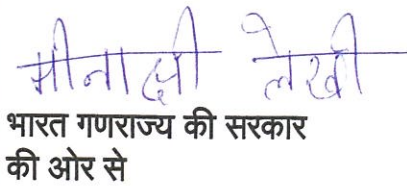 मीनाक्षी लेखी
भारत गणराज्य की सरकार
की ओर से